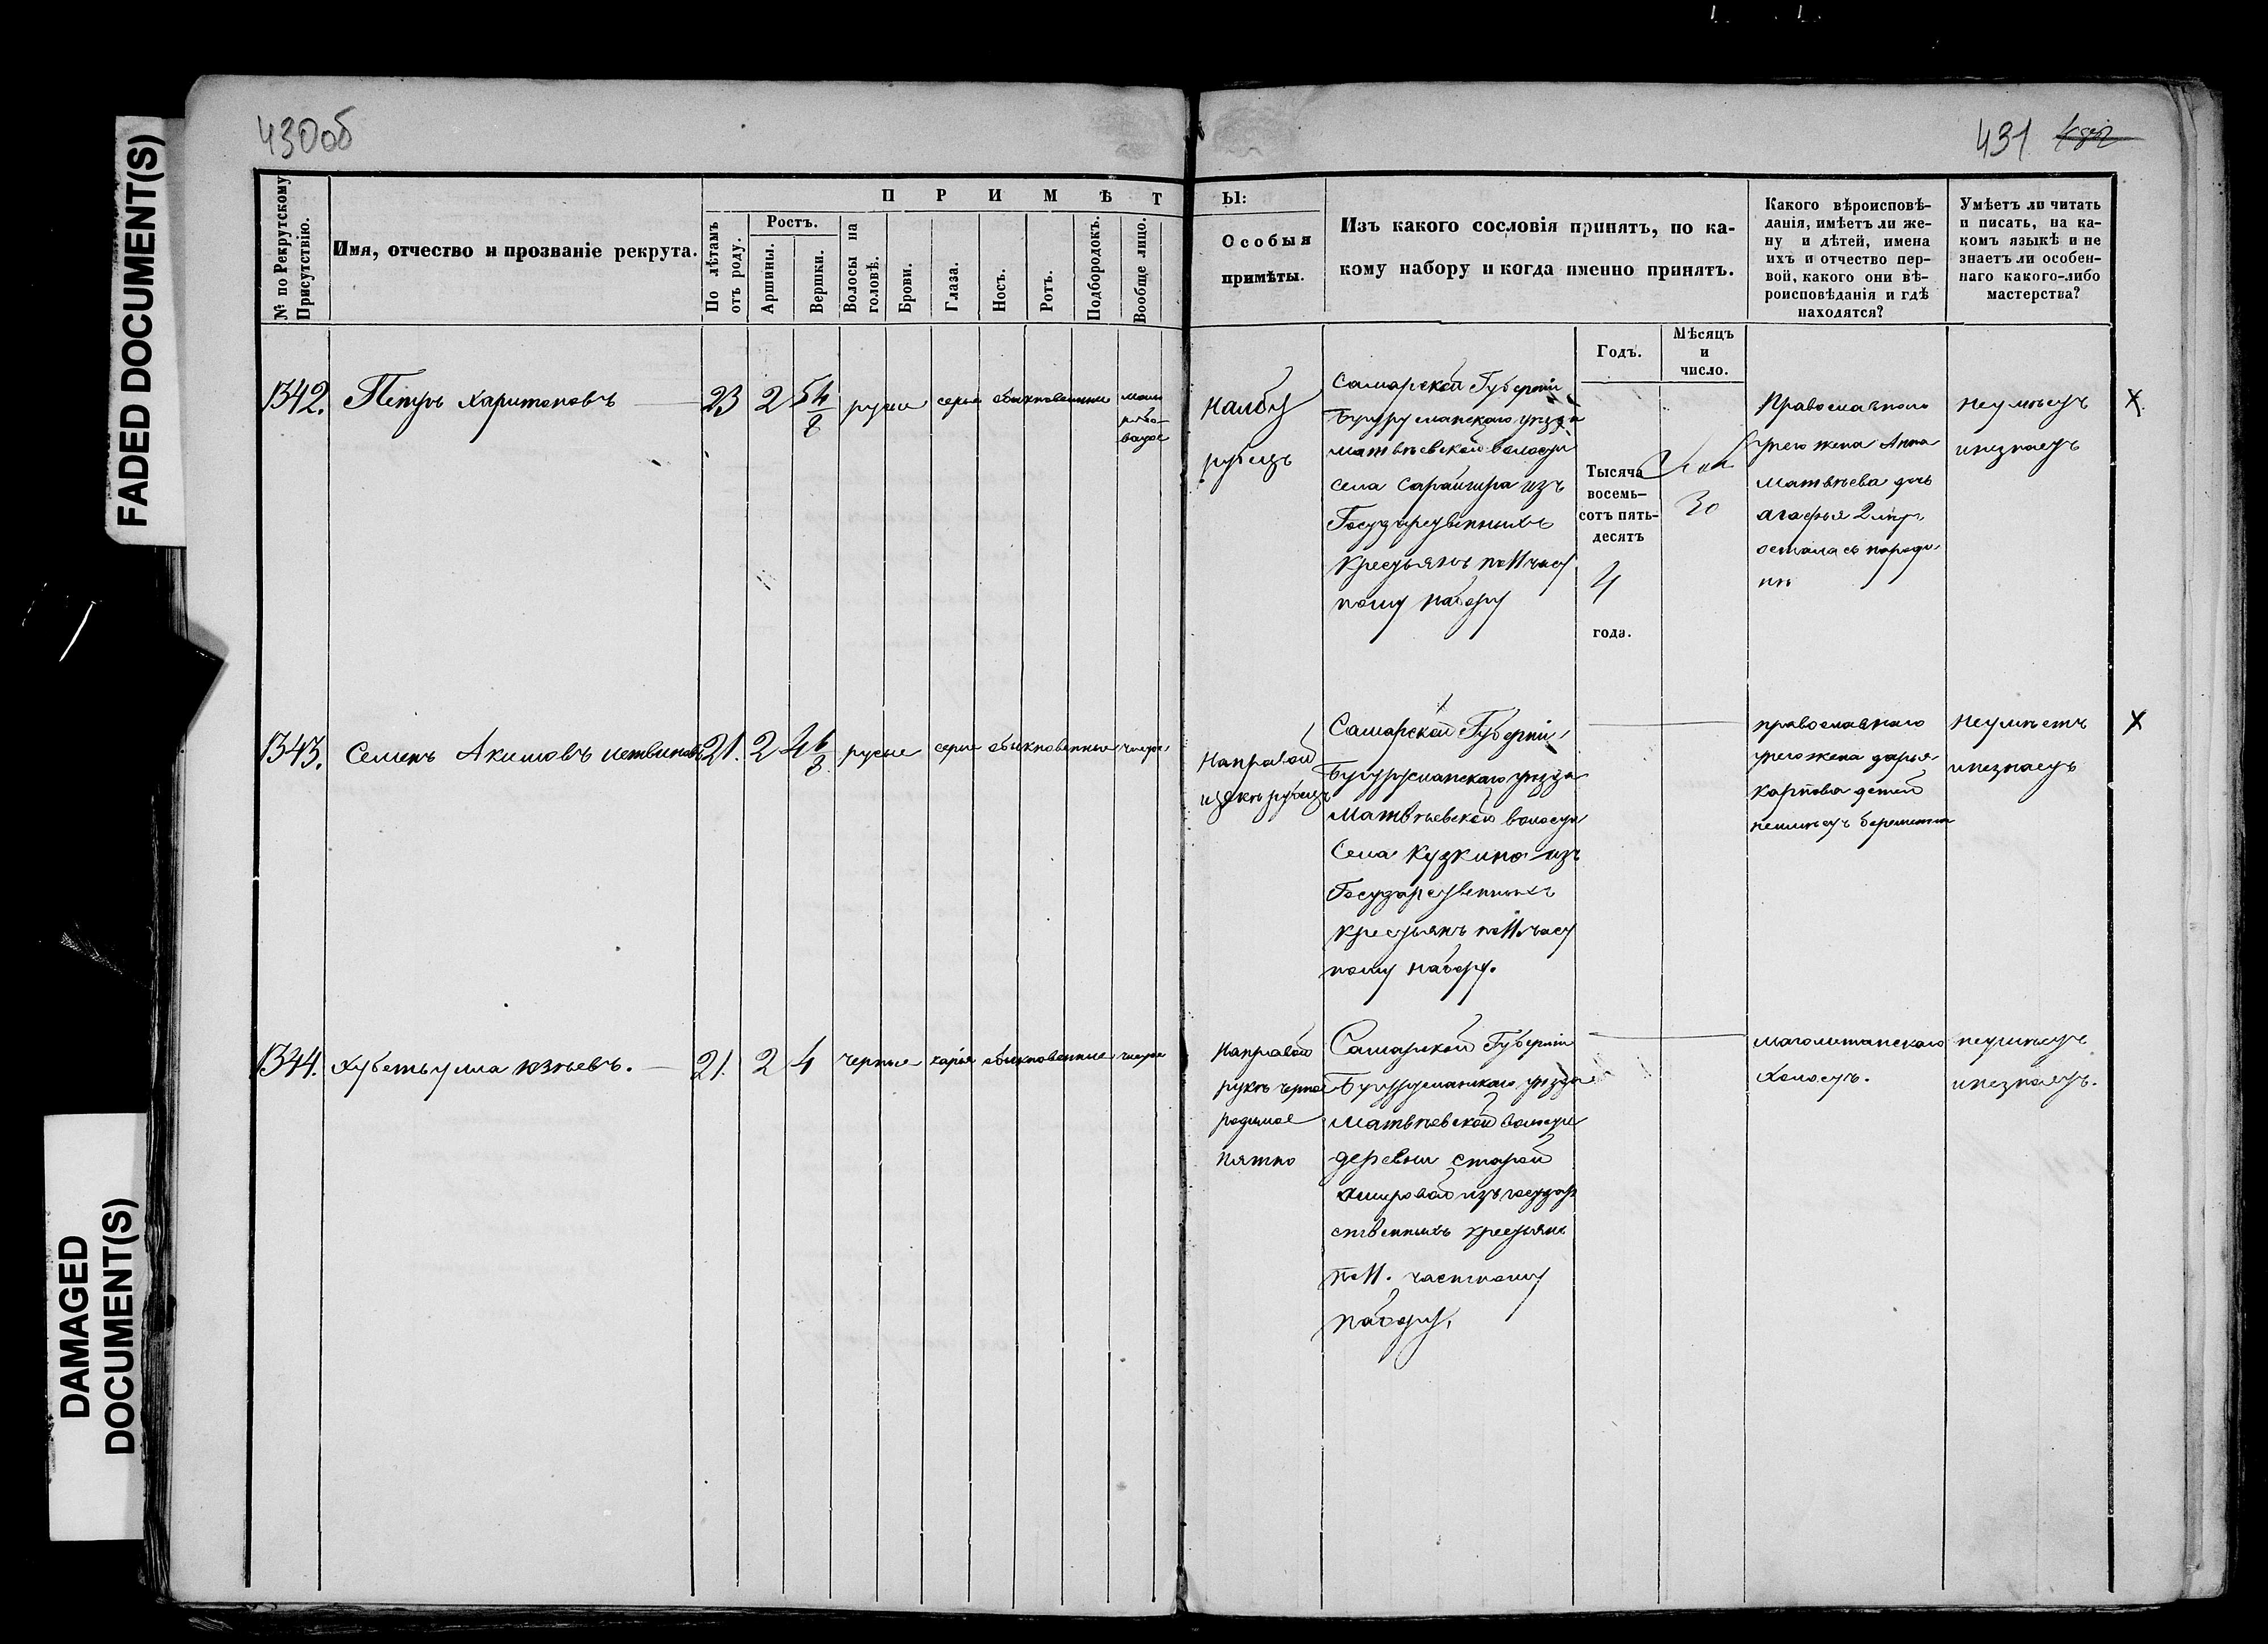 FADED DOCUMENT(S)
DAMAGED
DOCUMENT(S)
430об
431
№ по Рекрутскому
Присутствію.
Имя, отчество и прозваніе рекрута.
П Р И М Ѣ Т
По лѣтамъ
отъ роду.
Ростъ.
Аршины.
Вершки.
Волосы на
головѣ.
Брови.
Глаза.
Носъ.
Ротъ.
Подбородокъ.
Вообще лицо.
Ы:
Особыя
примѣты.
Изъ какого сословія принятъ, по ка-
кому набору и когда именно принятъ.
Годъ.
Мѣсяцъ
и
число.
Какого вѣроисповѣ-
данія, имѣетъ ли же-
ну и дѣтей, имена
ихъ и отчество пер-
вой, какого они вѣ-
роисповѣданія и гдѣ
находятся?
Умѣетъ ли читать
и писать, на ка-
комъ языкѣ и не
знаетъ ли особен-
наго какого-либо
мастерства?
1342.
Петръ Харитоновъ
23
2
5 4/8
русые
серые
обыкновенные
мало
рябо-
ватое
Налбу
рубецъ
Самарской Губерніи
Бугурусланскаго уезда
Матвѣевской волости
села Сарайгира изъ
Государственныхъ
Крестьянъ по 11 част
ному набору
Тысяча
восемь-
сотъ пять-
десятъ
4
года.
30
Православнаго
унего жена Анна
Матвѣева дочь
агафья 2 лѣт
осталась народи
нѣ
неумѣетъ
инезнаетъ
X
1343.
Семенъ Акимовъ
21.
2
4 6/8
русые
серые
обыкновенные
чистое
Направой
щекѣ рубецъ
Самарской Губерніи
Бугурусланскаго уезда
Матвѣевской волости
Села Кузкина изъ
Государственныхъ
крестьянъ по 11 част
ному набору.
православнаго
унего жена дарья
Карпова детей
неимѣетъ беременна
Неумѣетъ
инезнаетъ
X
1344.
21.
2
4
черные
карія
обыкновенные
чистое
Направой
рукѣ черное
родимое
пятно
Самарской Губерніи
Бугурусланскаго уезда
Матвѣевской волости
деревни старой
ашировой изъ государ
ственныхъ крестьянъ
по 11. частному
набору.
магометанскаго
холостъ.
неумѣетъ
инезнаетъ.